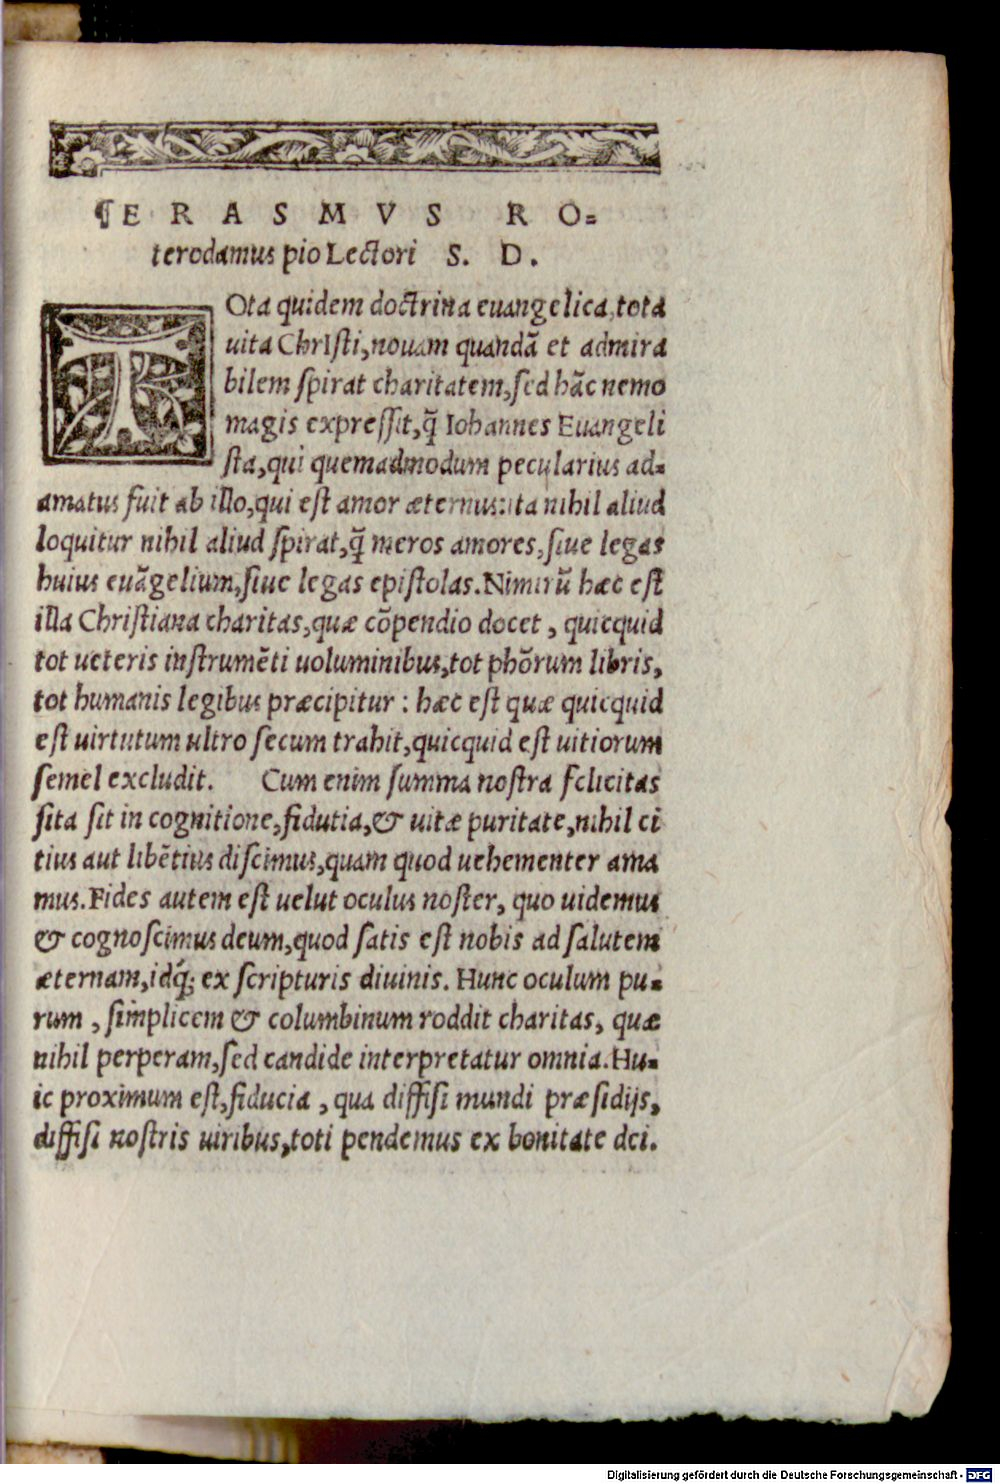 ¶ERASMVS RO=
terodamus pio Lectori S. D.
TOta quidem doctrina euangelica, tota
uita ChrIsti, nouam quandā et admira
bilem spirat charitatem, sed hāc nemo
magis expressit, q̃ Iohannes Euangeli
sta, qui quemadmodum pecularius ad=
amatus fuit ab illo, qui est amor æternus: ita nihil aliud
loquitur nihil aliud spirat, q̃ meros amores, siue legas
huius euāgelium, siue legas epistolas. Nimirū hæc est
illa Christiana charitas, quæ cōpendio docet, quicquid
tot ueteris instrumēti uoluminibus, tot phōrum libris,
tot humanis legibus præcipitur: hæc est quæ quicquid
est uirtutum ultro secum trahit, quicquid est uitiorum
semel excludit. Cum enim summa nostra felicitas
sita sit in cognitione, fidutia, & uitæ puritate, nihil ci
tius aut libētius discimus, quam quod uehementer ama
mus. Fides autem est uelut oculus noster, quo uidemus
& cognoscimus deum, quod satis est nobis ad salutem
æternam, idq́; ex scripturis diuinis. Hunc oculum pu=
rum, simplicem & columbinum roddit charitas, quæ
nihil perperam, sed candide interpretatur omnia. Hu=
ic proximum est, fiducia, qua diffisi mundi præsidijs,
diffisi nostris uiribus, toti pendemus ex bonitate dei.
Digitalisierung gefördert durch die Deutsche Forschungsgemeinschaft - DFG